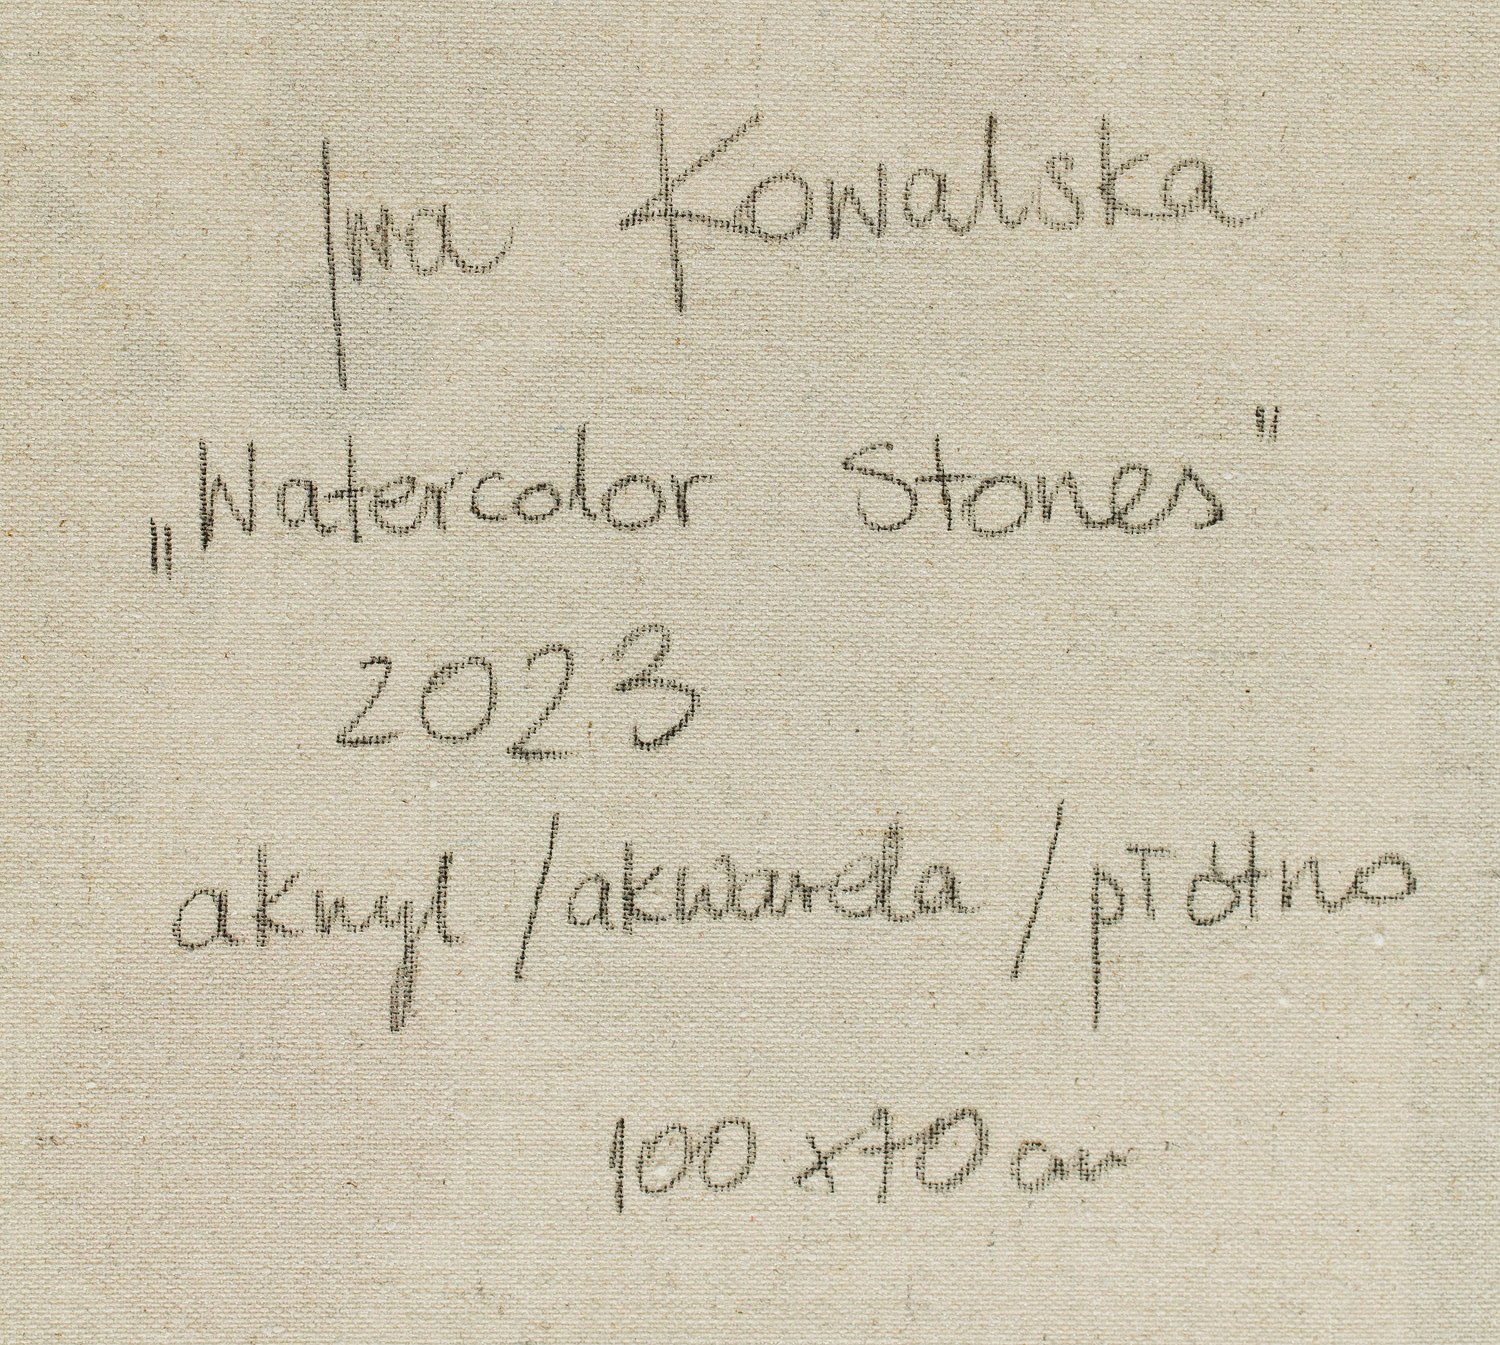 Iwa Kowalska
„Watercolor Stones"
2023
akryl / akwarela / płótno
100 x 70 cm